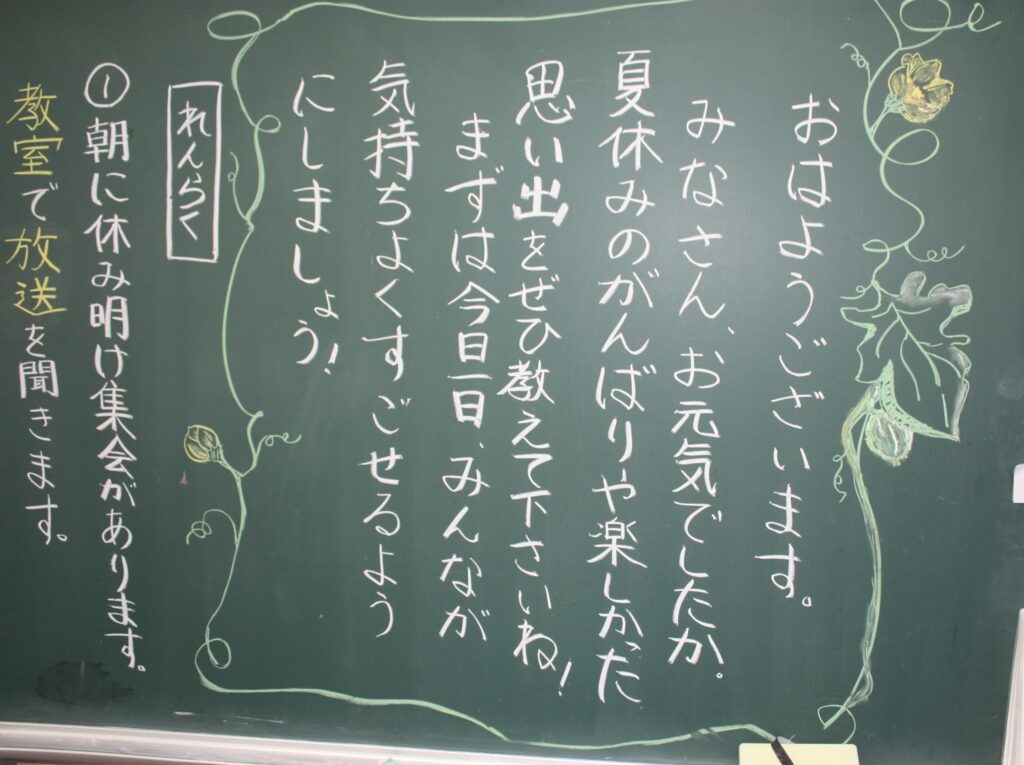 おはようございます。
みなさん、お元気でしたか。
夏休みのがんばりや楽しかった
思い出をぜひ教えて下さいね！
まずは今日一日、みんなが
気持ちよくすごせるよう
にしましょう！
れんらく
①朝に休み明け集会があります。
教室で放送を聞きます。